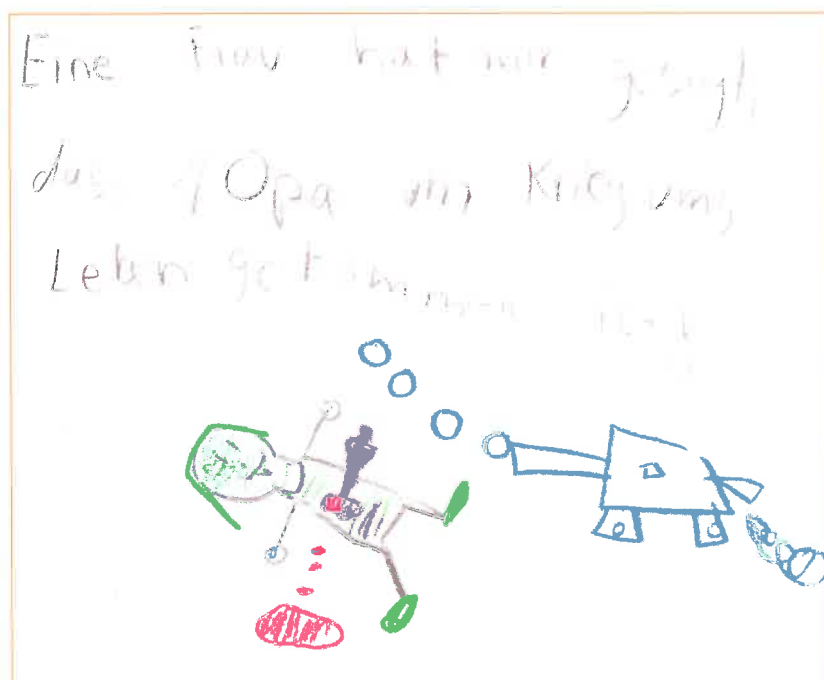 Eine Frau hat mir gesagt,
Opa im Krieg ums
Leben gekommen